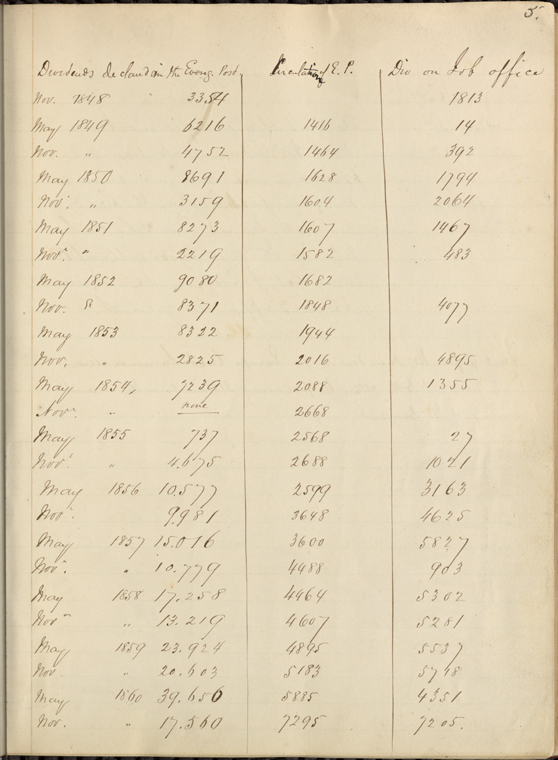 5.
Dividends declared in the Eveng. Post. Circulation of E. P. Div on Job office
Nov. 1848 3354 1813
May 1849 6216 1416 14
Nov. " 4752 1464 392
May 1850 8691 1628 1794
Nov. " 3159 1604 2064
May 1851 8273 1607 1467
Nov. " 2219 1582 483
May 1852 9080 1682
Nov. " 8371 1848 4077
May 1853 8322 1944
Nov. " 2825 2016 4895
May 1854, 7239 2088 1355
Nov. " none 2668
May 1855 737 2568 27
Nov. " 4.675 2688 1021
May 1856 10.577 2599 3163
Nov. 9.981 3648 4625
May 1857 15.016 3600 5827
Nov. " 10.779 4488 903
May 1858 17.258 4464 5302
Nov " 13.219 4607 5281
May 1859 23.924 4895 5537
Nov. " 20.603 5183 5748
May 1860 39.656 5885 4351
Nov. " 17.560 7295 7205.